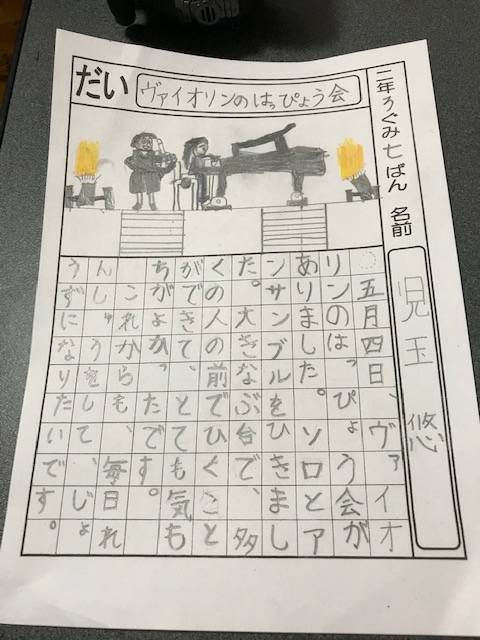 だい
ヴァイオリンのはっぴょう会
二年3ぐみ七ばん 名前
児玉 悠
五月四日、ヴァイオ
リンのはっぴょう会が
ありました。ソロとア
ンサンブルをひきまし
た。大きなぶ台で、多
くの人の前でひくこと
ができて、とても気も
ちがよかったです。
これからも、毎日れ
んしゅうをして、じょ
うずになりたいです。